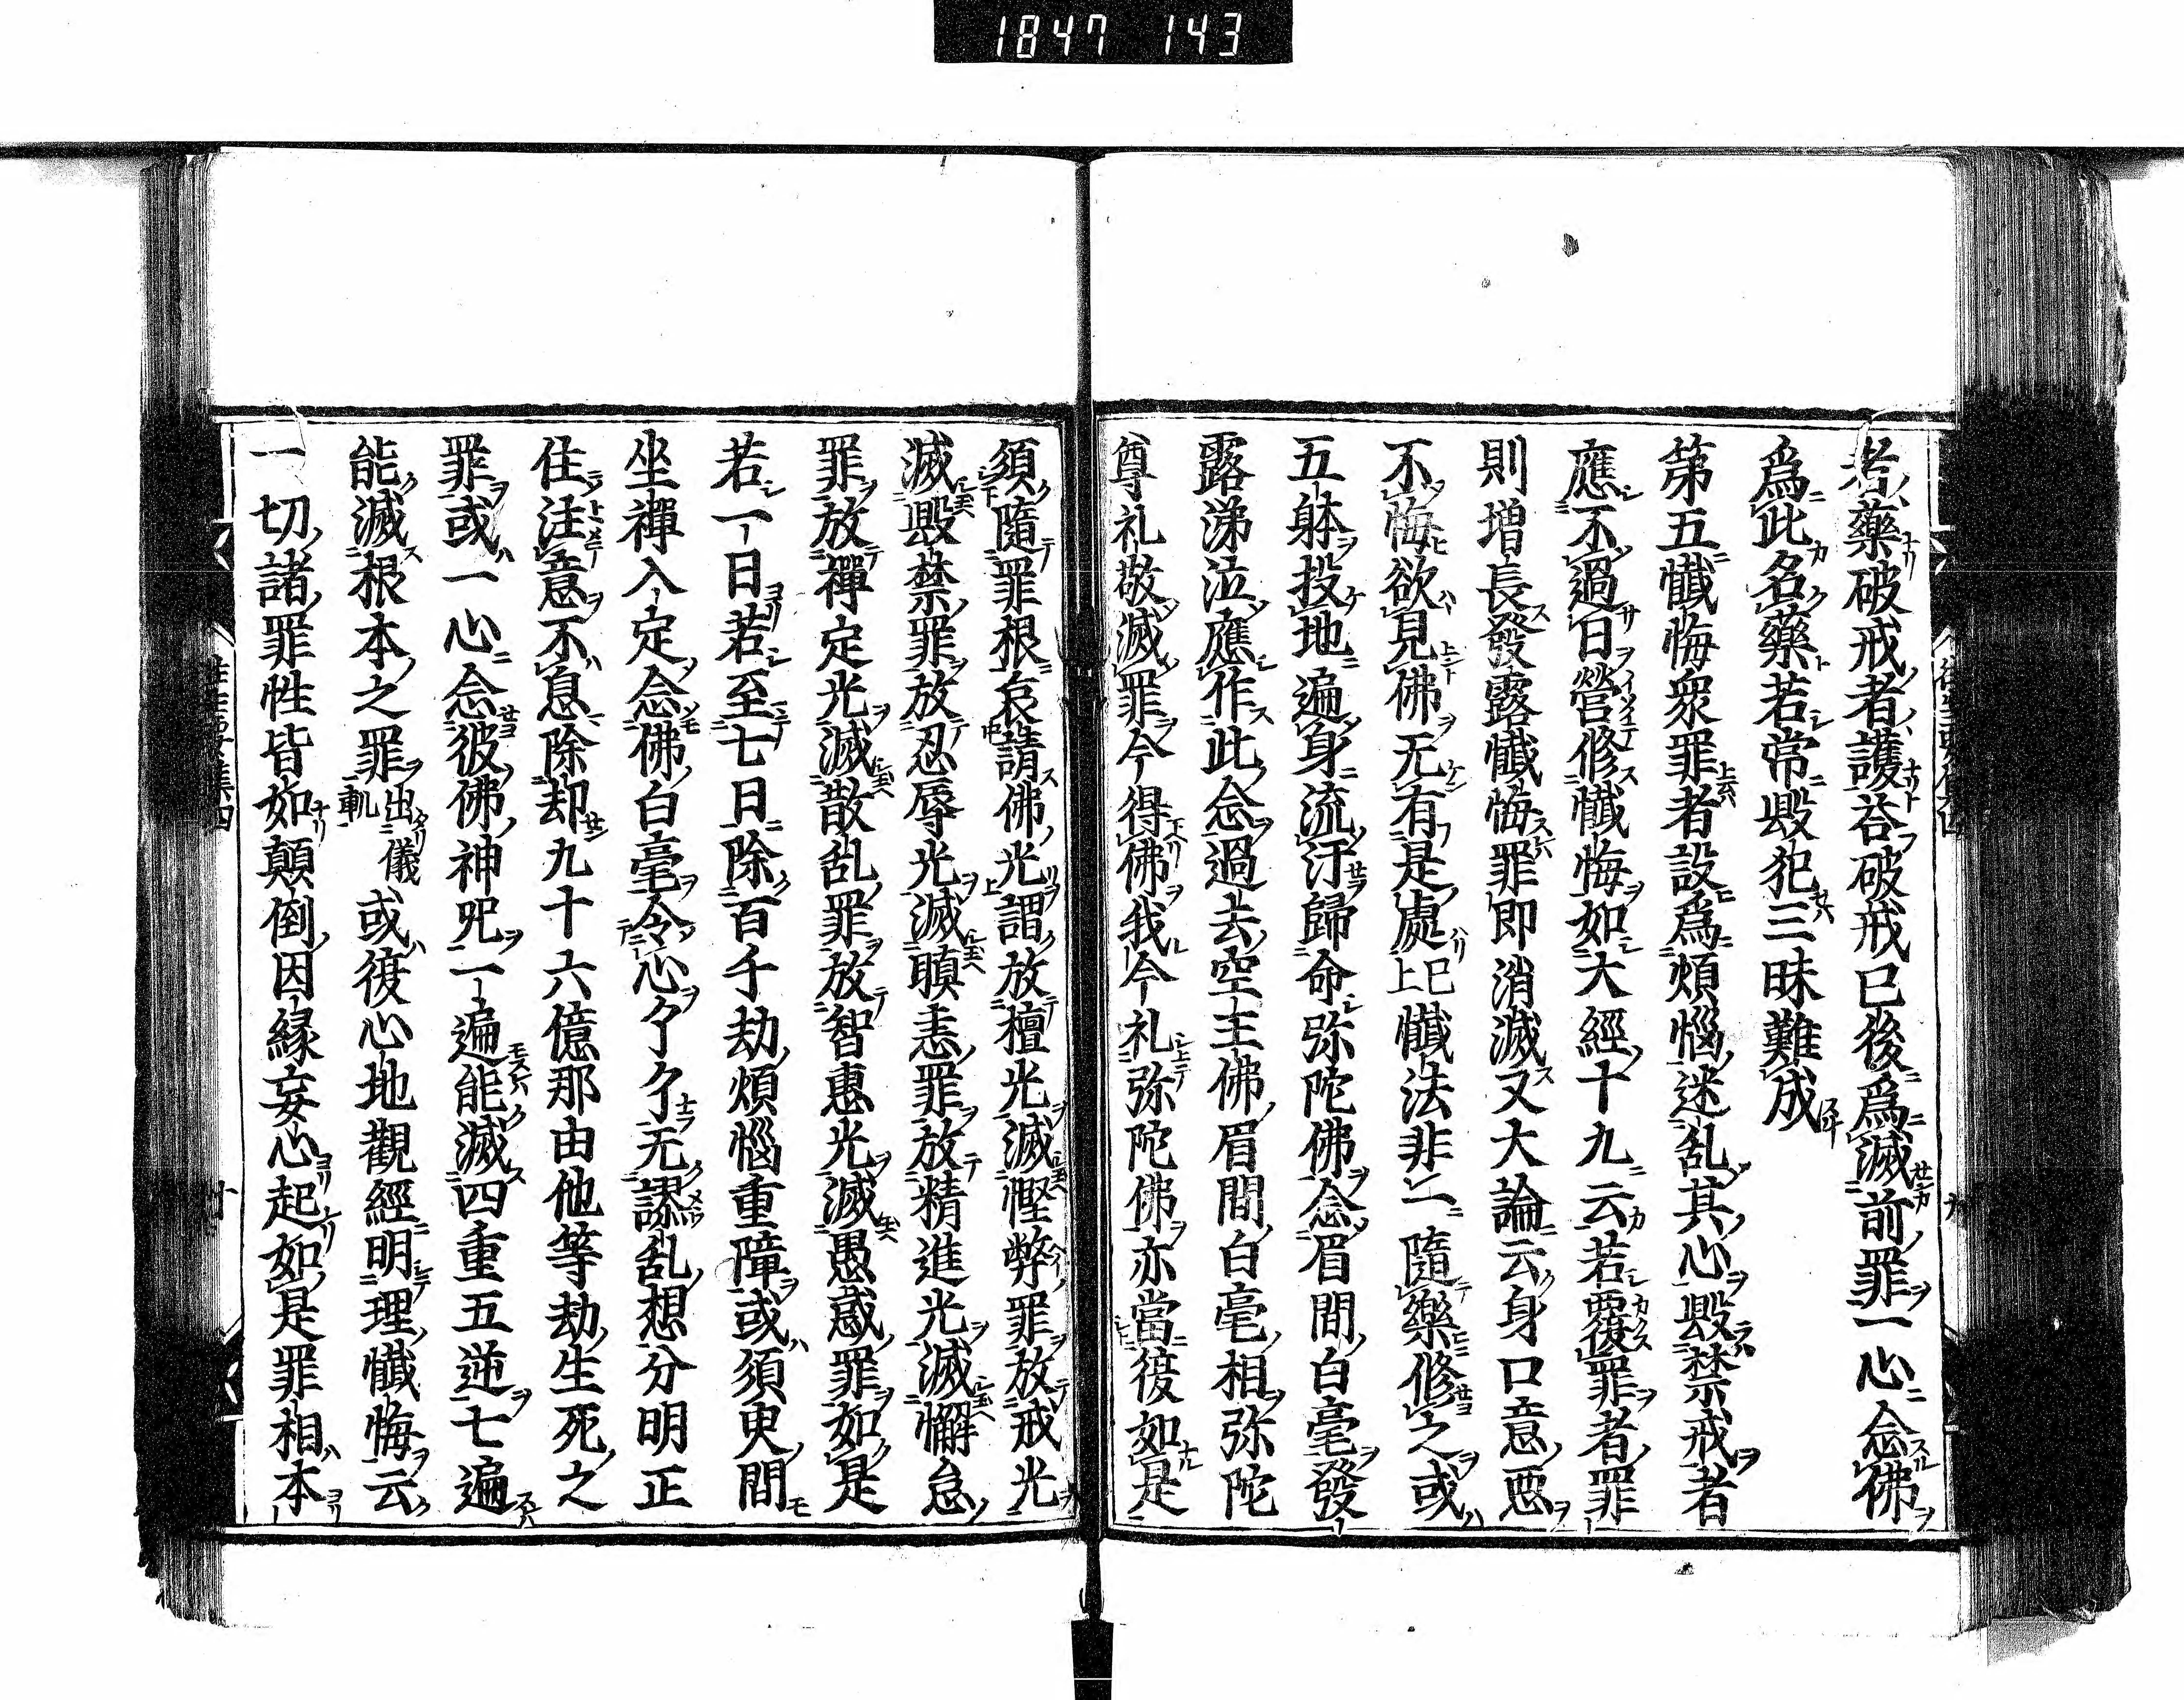 1847 143
者藥破戒者護荅破戒已後爲滅前罪一心念佛
爲此名藥若常毀犯三昧難成
第五懺悔衆罪者設爲煩惱迷乱其心毀禁戒者
應不過日營修懺悔如大經十九云若覆罪者罪
則増長發露懺悔罪即消滅又大論云身口意惡
不悔欲見佛无有是處已上懺法非一隨樂修之或
五躰投地遍身流汗歸命弥陀佛念眉間白毫發
露涕泣應作此念過去空王佛眉間白毫相弥陀
尊礼敬滅罪今得佛我今礼弥陀佛亦當復如是
須隨罪根哀請佛光謂放檀光滅慳弊罪放戒光
滅毀禁罪放忍辱光滅瞋恚罪放精進光滅懈怠
罪放禪定光滅散乱罪放智惠光滅愚惑罪如是
若一日若至七日除百千劫煩惱重障或須臾間
坐禪入定念佛白毫令心了了无謬乱想分明正
住注意不息除却九十六億那由他等劫生死之
罪或一心念彼佛神呪一遍能滅四重五逆七遍
能滅根本之罪出儀軌或復心地觀經明理懺悔云
一切諸罪性皆如顛倒因縁妄心起如是罪相本